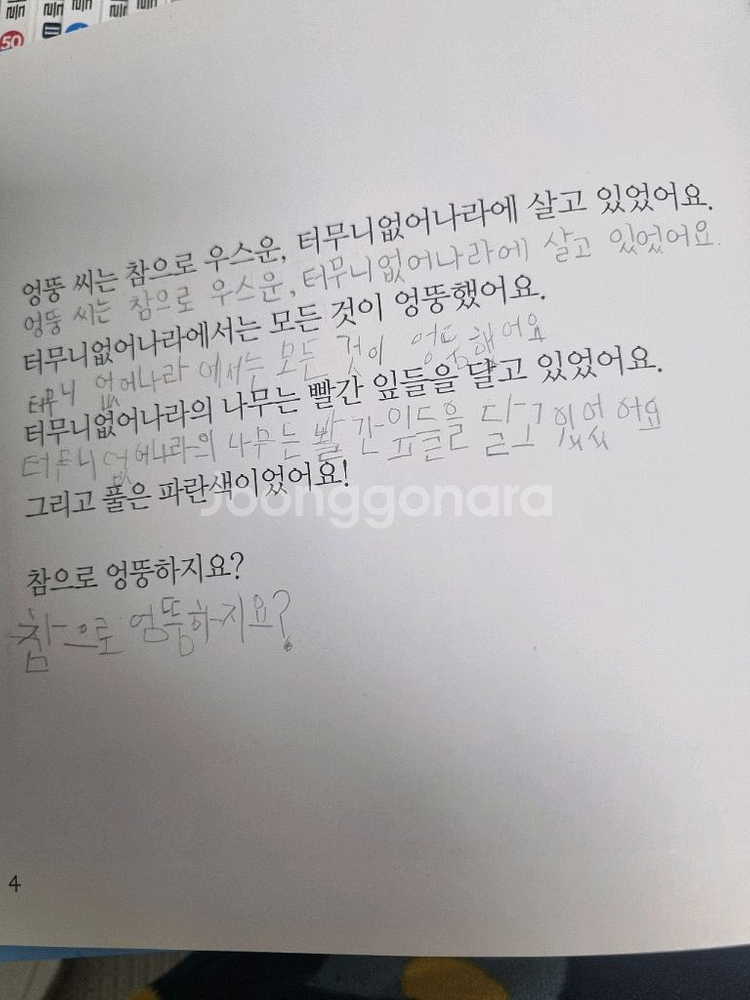 50
엉뚱 씨는 참으로 우스운, 터무니없어나라에 살고 있었어요.
엉뚱 씨는 참으로 우스운, 터무니없어나라에 살고 있었어요.
터무니없어나라에서는 모든 것이 엉뚱했어요.
터무니 없어나라에서는 모든 것이 엉뚱했어요
터무니없어나라의 나무는 빨간 잎들을 달고 있었어요.
터무니없어나라의 나무는 빨간 잎들을 달고 있었어요
그리고 풀은 파란색이었어요!
Joonggonara
참으로 엉뚱하지요?
참으로 엉뚱하지요?
4